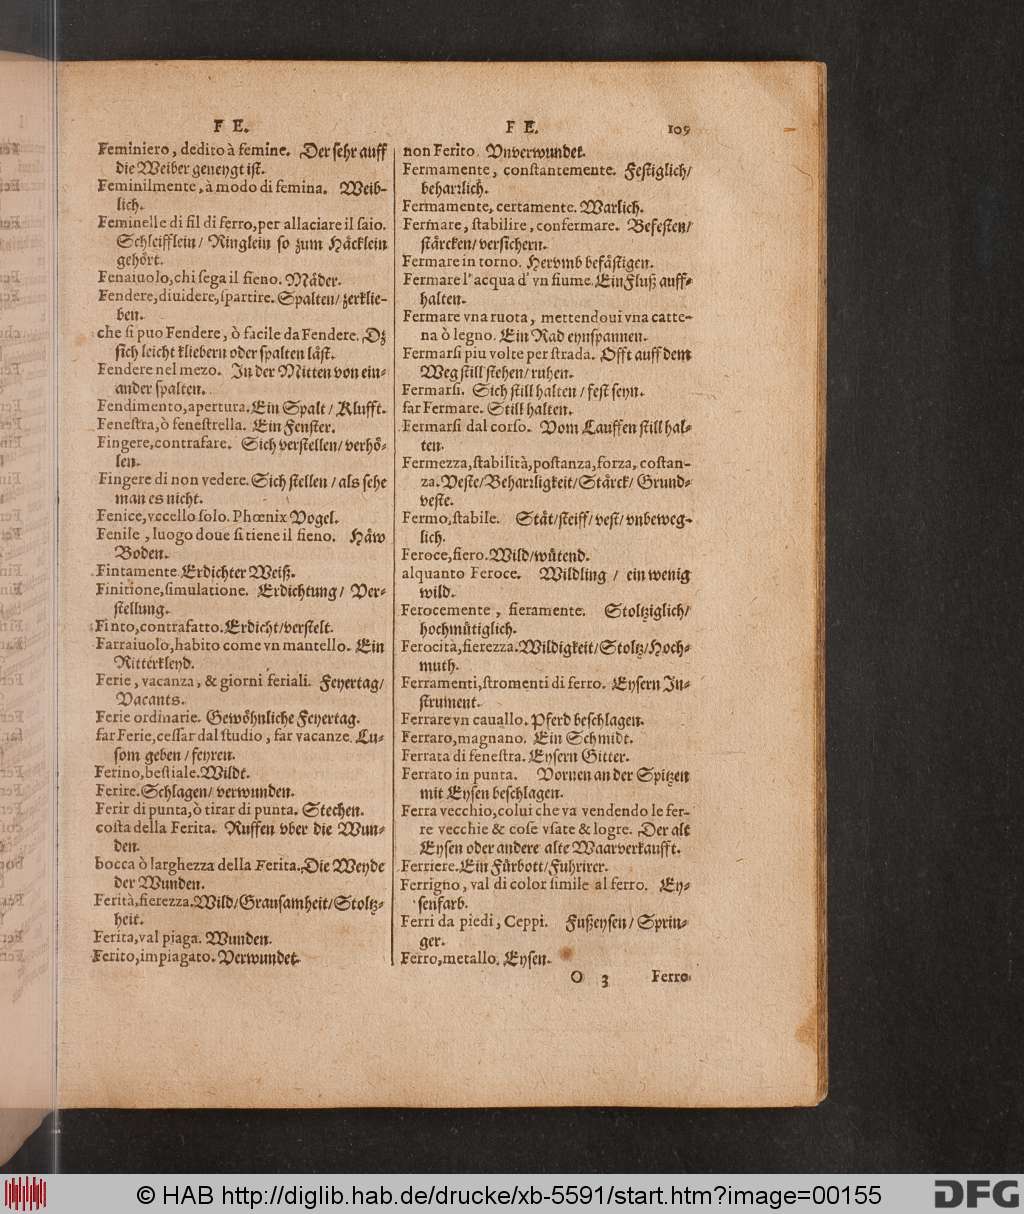 F E.
Feminiero, dedito à femine. Der sehr auff
die Weiber geneygt ist.
Feminilmente, à modo di femina. Weib-
lich.
Feminelle di fil di ferro, per allaciare il saio.
Schleifflein/ Ringlein so zum Häcklein
gehört.
Fenaiuolo, chi sega il fieno. Mäder.
Fendere, diuidere, spartire. Spalten/ zerklie-
ben.
che si puo Fendere, ò facile da Fendere. Dz
sich leicht kliebern oder spalten låst.
Fendere nel mezo. In der Mitten von ein-
ander spalten.
Fendimento, apertura. Ein Spalt / Klufft.
Fenestra, ò fenestrella. Ein Fenster.
Fingere, contrafare. Sich verstellen/ verhö-
len.
Fingere di non vedere. Sich stellen / als sehe
man es nicht.
Fenice, vccello solo. Phœnix Vogel.
Fenile , luogo doue si tiene il fieno. Häw
Boden.
Fintamente. Erdichter Weiß.
Finitione, simulatione. Erdichtung/ Ver-
stellung.
Finto, contrafatto. Erdicht/verstelt.
Farraiuolo, habito come vn mantello. Ein
Ritterkleyd.
Ferie, vacanza, & giorni feriali. Feyertag/
Vacants.
Ferie ordinarie. Gewöhnliche Feyertag.
far Ferie, cessar dal studio, far vacanze. Lu-
som geben / feyren.
Ferino, bestiale. Wildt.
Ferire. Schlagen/ verwunden.
Ferir di punta, ò tirar di punta. Stechen.
costa della Ferita. Ruffen vber die Wun-
den.
bocca ò larghezza della Ferita. Die Weyde
der Wunden.
Ferità, fierezza. Wild/Grausamheit/Stoltz-
heit.
Ferita, val piaga. Wunden.
Ferito, impiagato. Verwundet.
F E. 109
non Ferito. Vnverwundet.
Fermamente, constantemente. Festiglich/
beharrlich.
Fermamente, certamente. Warlich.
Fermare, stabilire, confermare. Befesten/
stärcken/ versichern.
Fermare in torno. Hervmb befästigen.
Fermare l'acqua d' vn fiume. Ein Fluß auff-
halten.
Fermare vna ruota, mettendoui vna catte-
na ò legno. Ein Rad eynspannen.
Fermarsi piu volte per strada. Offt auff dem
Weg still stehen/ ruhen.
Fermarsi. Sich still halten / fest seyn.
far Fermare. Still halten.
Fermarsi dal corso. Vom Lauffen still hal-
ten.
Fermezza, stabilità, postanza, forza, costan-
za. Veste/Beharrligkeit/Stärck/ Grund-
veste.
Fermo, stabile. Stät/steiff/ vest/ vnbeweg-
lich.
Feroce, fiero. Wild/wütend.
alquanto Feroce. Wildling / ein wenig
wild.
Ferocemente , fieramente. Stoltziglich/
hochmütiglich.
Ferocità, fierezza. Wildigkeit/Stoltz/Hoch-
muth.
Ferramenti, stromenti di ferro. Eysern In-
strument.
Ferrare vn cauallo. Pferd beschlagen.
Ferraro, magnano. Ein Schmidt.
Ferrata di fenestra. Eysern Gitter.
Ferrato in punta. Vornen an der Spitzen
mit Eysen beschlagen.
Ferra vecchio, colui che va vendendo le fer-
re vecchie & cose vsate & logre. Der alt
Eysen oder andere alte Waar verkaufft.
Ferriere. Ein Fürbott/Fuhrirer.
Ferrigno, val di color simile al ferro. Ey-
senfarb.
Ferri da piedi, Ceppi. Fußeysen/ Sprin-
ger.
Ferro, metallo. Eysen.
O 3 Ferro
© HAB http://diglib.hab.de/drucke/xb-5591/start.htm?image=00155
DFG